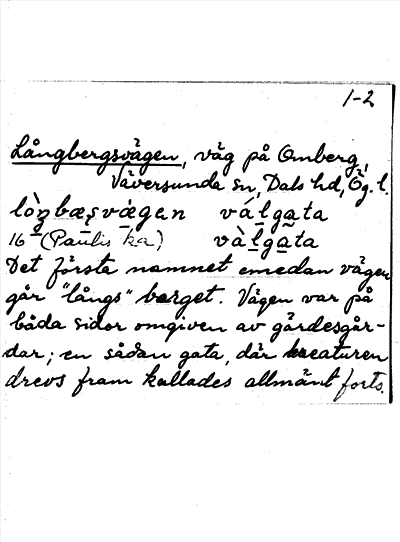 1-2
Långbergsvägen, väg på Omberg,
Väversunda sn, Dals hd, Ög. l.
lòŋbæʂvägen válgata
16 (Paulis ka) vàlgata
Det första namnet emedan vägen
går "långs" berget. Vägen var på
båda sidor omgiven av gärdesgår-
dar; en sådan gata, där kreaturen
drevs fram kallades allmänt forts.